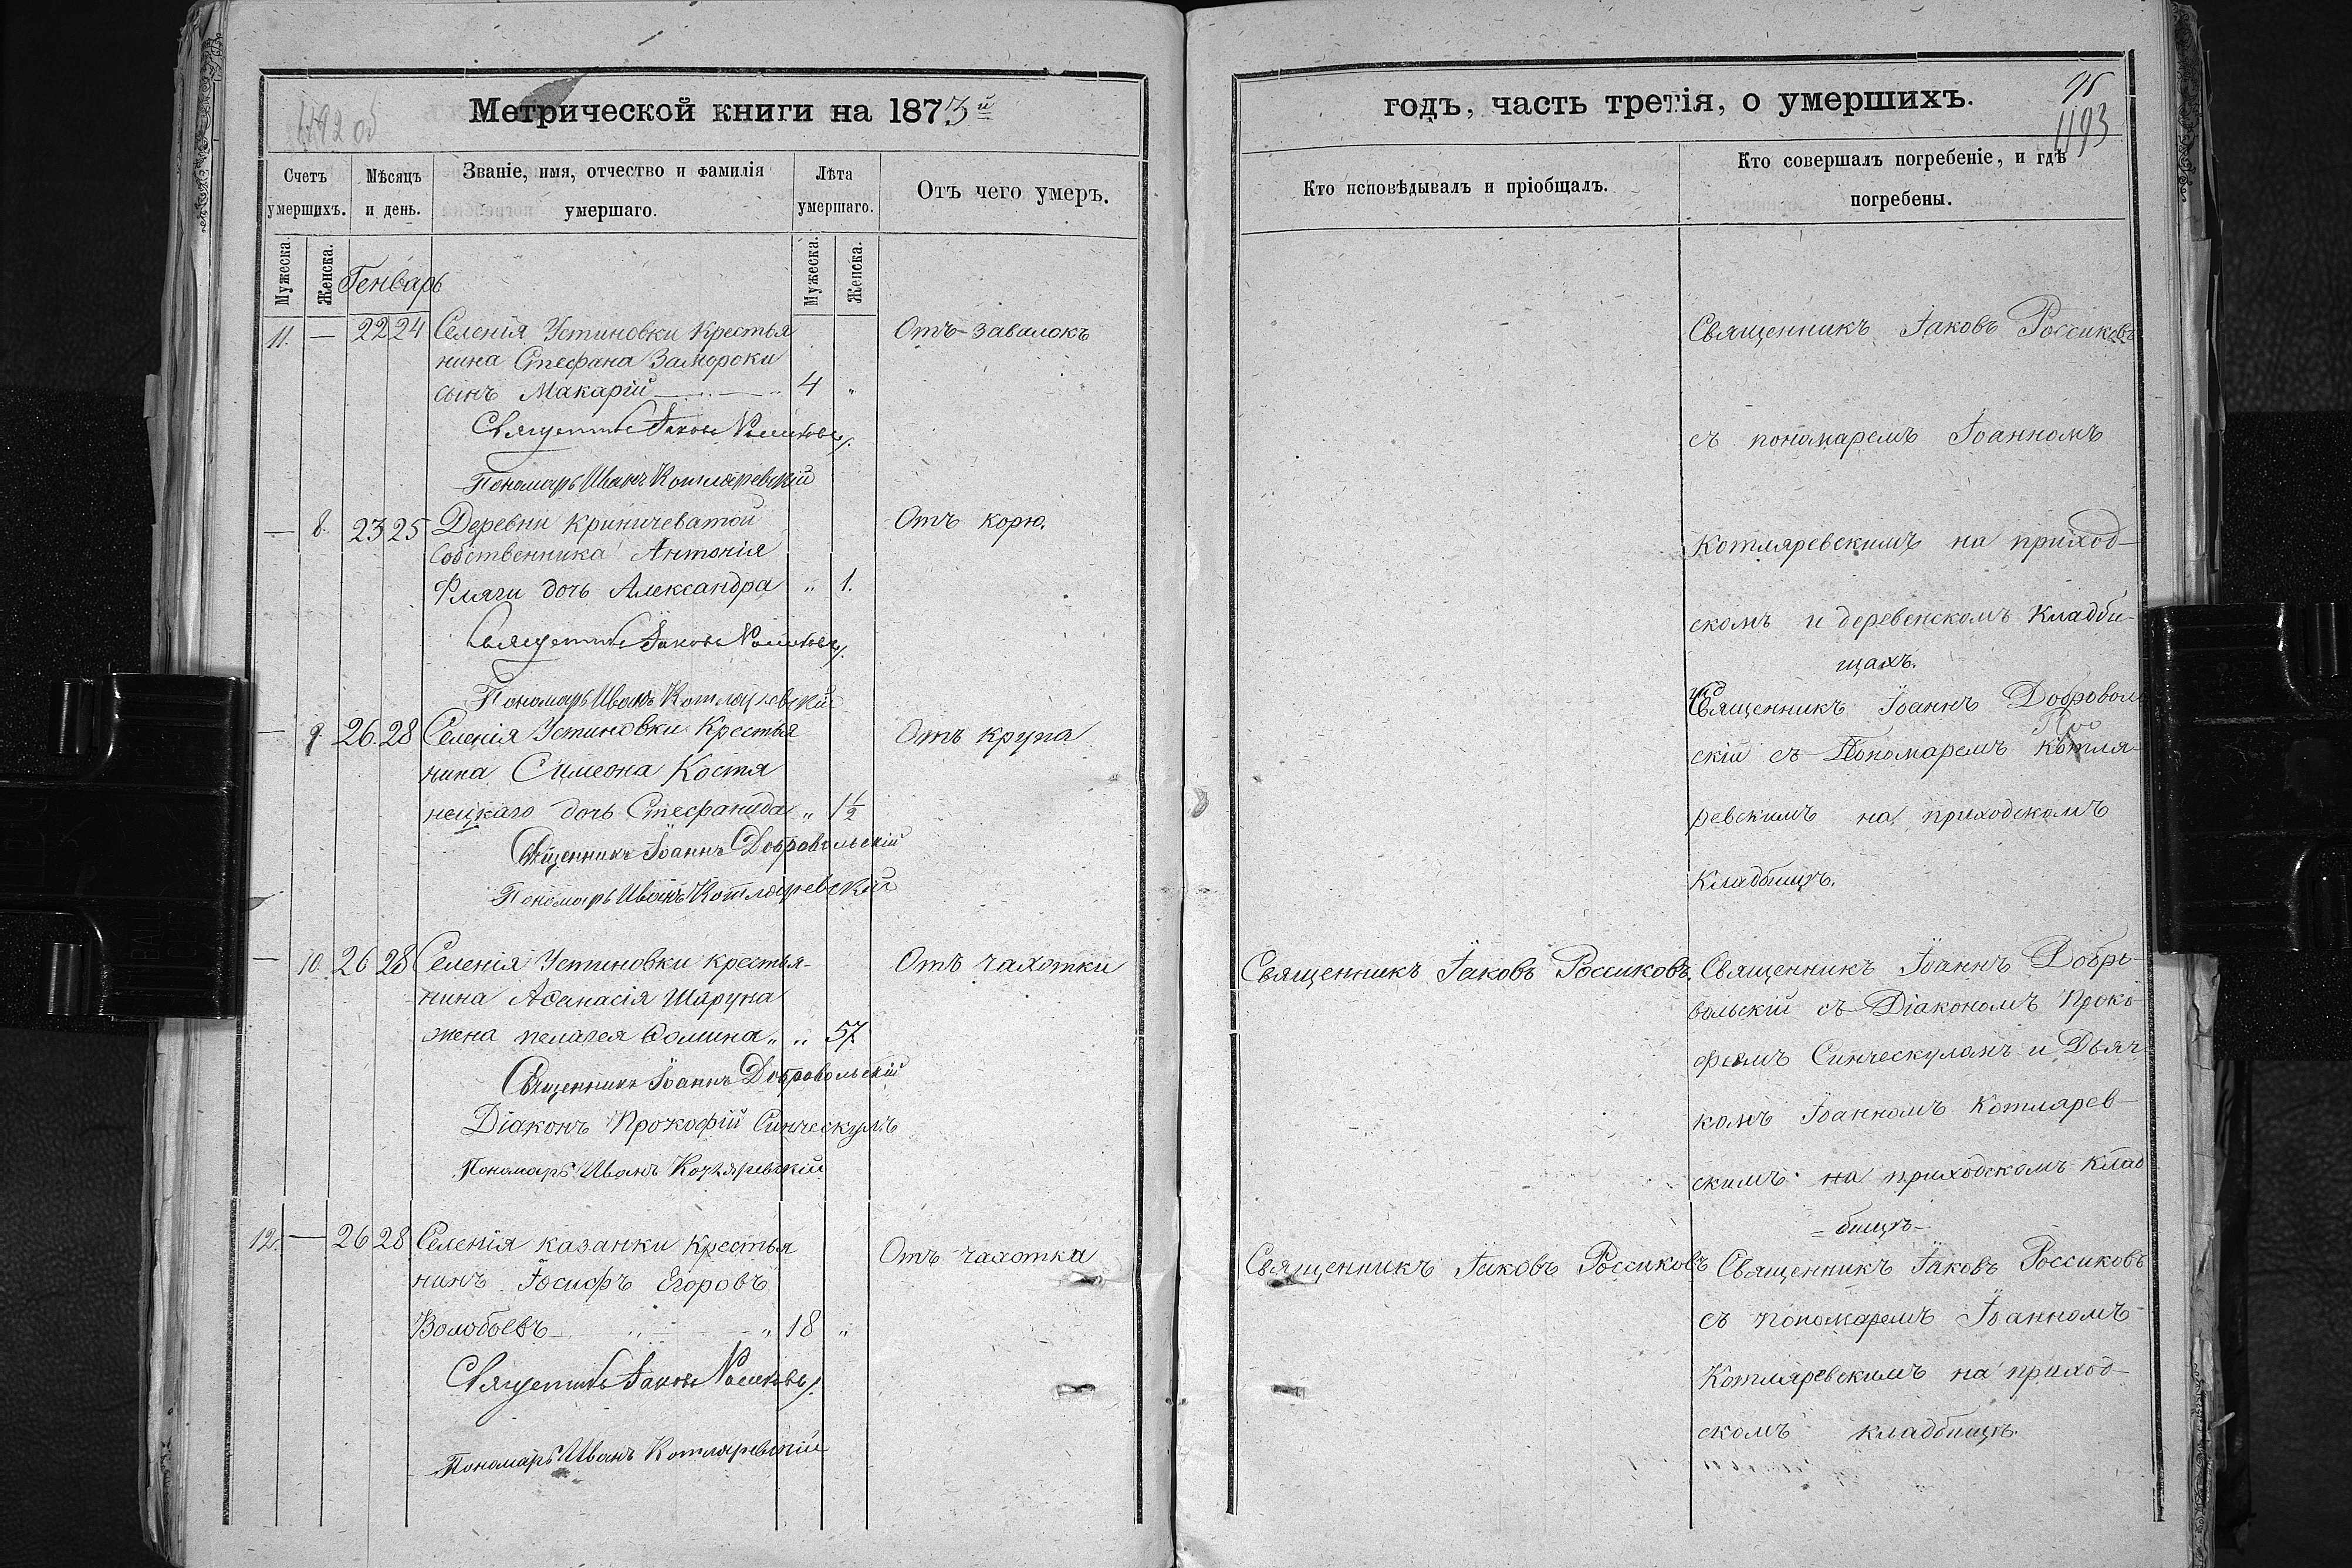 Метрической книги на 1873й
Счетъ умершихъ.
Мѣсяцъ и день.
Званіе, имя, отчество и фамилія
умершаго.
Лѣта умершаго.
Отъ чего умеръ.
Мужеска.
Женска.
Мужеска.
Женска.
Генварь
11. — 22 24 Селенія Устиновки Крестья
нина Стефана Замороки
сынъ Макарій 4 „
Отъ завалокъ
Священникъ Іаковъ Россиковъ
Пономарь Иванъ Котляревскій
— 8. 23 25 Деревни Криничеватой
Собственника Антонія
Фляги дочь Александра „ 1.
Отъ корю.
Священникъ Іаковъ Россиковъ
Пономарь Иванъ Котляревскій
— 9 26 28 Селенія Устиновки Крестья
нина Симеона Костя
нецкаго дочь Стефанида „ 1½
Отъ крупа
Священникъ Іоаннъ Добровольскій
Пономарь Иванъ Котляревскій
— 10. 26 28 Селенія Устиновки крестья-
нина Аѳанасія Шаруна
жена пелагея Ѳомина „ „ 57
Отъ чахотки
Священникъ Іоаннъ Добровольскій
Діаконъ Прокофій Синческулъ
Пономарь Иванъ Котляревскій
12. — 26 28 Селенія казанки Крестья
нинъ Іосифъ Егоровъ
Волобоевъ „ „ 18 „
Отъ чахотка
Священникъ Іаковъ Россиковъ
Пономарь Иванъ Котляревскій
годъ, часть третія, о умершихъ.
95
1193
Кто исповѣдывалъ и пріобщалъ.
Кто совершалъ погребеніе, и гдѣ
погребены.
Священникъ Іаковъ Россиковъ
съ пономаремъ Іоанномъ
Котляревскимъ на приход-
скомъ и деревенскомъ Кладби-
щахъ.
Священникъ Іоаннъ Доброволь
скій съ Пономаремъ Котля-
ревскимъ на приходскомъ
Кладбищѣ.
Священникъ Іаковъ Россиковъ.
Священникъ Іоаннъ Добро-
вольскій съ Діакономъ Проко-
фіемъ Синческуломъ и Дьяч-
комъ Іоанномъ Котлярев-
скимъ на приходскомъ Клад
-бищѣ-
Священникъ Іаковъ Россиковъ
Священникъ Іаковъ Россиковъ
съ пономаремъ Іоанномъ
Котляревскимъ на приход-
скомъ кладбищѣ.